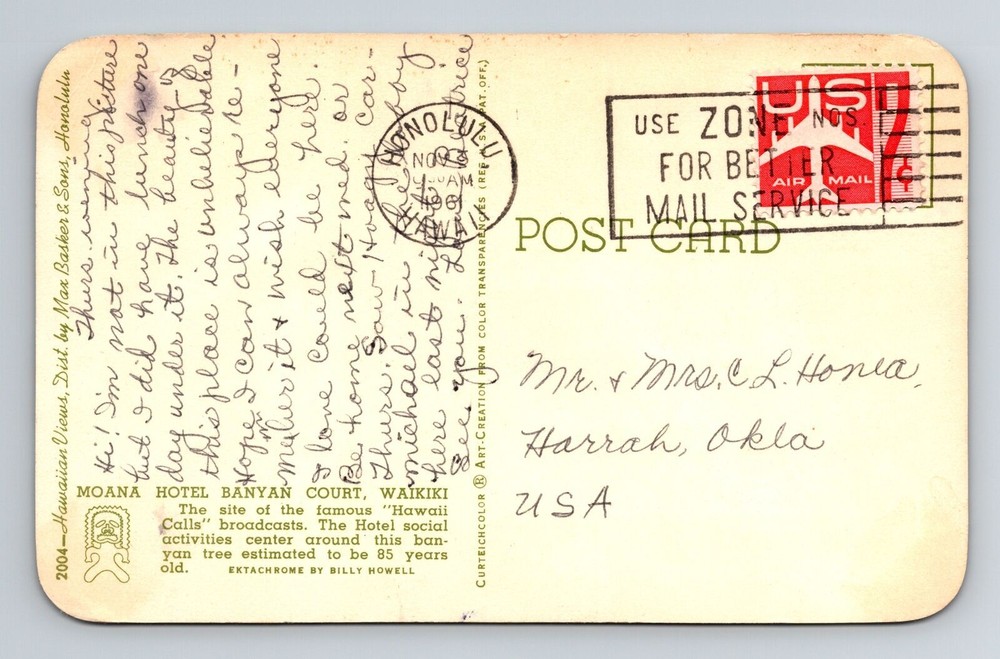 Thurs. evening
Hi! I'm not in this picture
but I did have lunch one
day under it. The beauty of
this place is unbelievable
Hope I can always re-
member it & wish everyone
I love could be here.
Be home next wed. or
Thurs. Saw Howard Car-
michael in the lobby
here last night.
See you. Love
MOANA HOTEL BANYAN COURT, WAIKIKI
The site of the famous "Hawaii
Calls" broadcasts. The Hotel social
activities center around this ban-
yan tree estimated to be 85 years
old. EKTACHROME BY BILLY HOWELL
2004—Hawaiian Views, Dist. by Max Basker & Sons, Honolulu
CURTEICHCOLOR ® ART-CREATION FROM COLOR TRANSPARENCIES (REG. U.S. PAT. OFF.)
HONOLULU
NOV
AM
HAWAII
USE ZONE NOS.
FOR BETTER
MAIL SERVICE
US
AIR MAIL
7¢
POST CARD
Mr. & Mrs. C L. Honea,
Harrah, Okla
USA